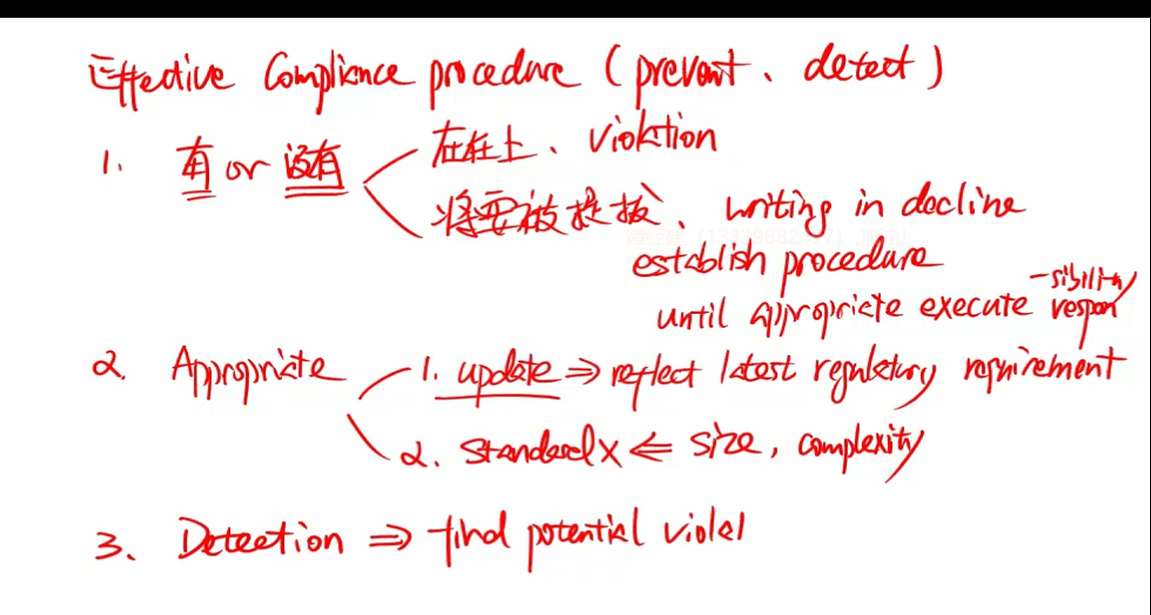 Effective Compliance procedure (prevent、detect)
1. 有 or 没有
在任上、violation
将要被提拔、writing in decline
establish procedure
until appropriate execute respon
-sibility
2. Appropriate
1. update ⇒ reflect latest regulatory requirement
2. Standard× ⇐ size, complexity
3. Detection ⇒ find potential violat